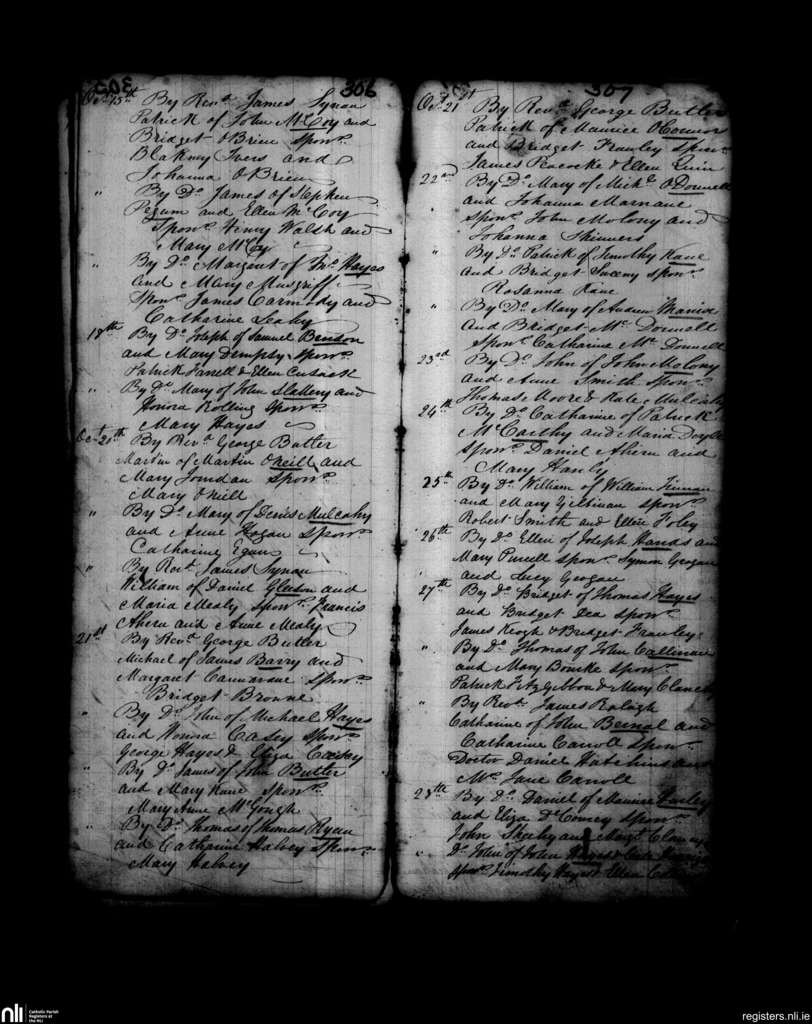 306
Octr 15th By Revd. James Synan
Patrick of John McCoy and
Bridget OBrien sponrs.
Blakeny Ivers and
Johanna OBrien
" By Do. James of Stephen
Pegum and Ellen McCoy
Sponrs. Henry Walsh and
Mary McCoy
" By Do. Margaret of Jno. Hayes
and Mary Musgriff
Sponrs. James Carmody and
Catharine Leahy
18th By Do. Joseph of Samuel Benson
and Mary Dempsy sponrs.
Patrick Farrell & Ellen Cusack
" By Do. Mary of John Slattery and
Honora Rolling sponrs.
Mary Hayes
Oct. 20th By Revd. George Butler
Martin of Martin ONeill and
Mary Jourdan sponrs.
Mary ONeill
" By Do. Mary of Denis Mulcahy
and Anne Hogan sponrs.
Catharine Egan
" By Revd. James Synan
William of Daniel Gleeson and
Maria Mealy sponrs. Francis
Ahern and Anne Mealy
21st By Revd. George Butler
Michael of James Barry and
Margaret Cannavane sponrs.
Bridget Browne
" By Do. John of Michael Hayes
and Honora Casey sponrs.
George Hayes & Eliza Casey
" By Do. James of John Butler
and Mary Kane sponrs.
Mary Anne McGough
" By Do. Thomas of Thomas Ryan
and Catharine Halvey sponrs.
Mary Halvey
307
Oct. 21st By Revd. George Butler
Patrick of Maurice OConnor
and Bridget Frawley sponrs.
James Peacocke & Ellen Quin
22nd By Do. Mary of Michl. ODonnell
and Johanna Marnane
sponrs. John Molony and
Johanna Skinners
" By Do. Patrick of Timothy Kane
and Bridget Sweeny sponrs.
Rosanna Kane
" By Do. Mary of Andrew
and Bridget Mc. Donnell
sponrs. Catharine Mc. Donnell
23rd By Do. John of John Molony
and Anne Smith sponrs.
Thomas Moore & Kate Mulcahy
24th By Do. Catharine of Patrick
McCarthy and Maria Doyle
sponrs. Daniel Ahern and
Mary Hanly
25th By Do. William of William
and Mary sponrs.
Robert Smith and Ellen Foley
26th By Do. Ellen of Joseph Hands and
Mary Purcell sponrs. Symon Geogan
and Lucy Geogan
27th By Do. Bridget of Thomas Hayes
and Bridget Dea sponrs.
James Keogh & Bridget Frawley
" By Do. Thomas of John Callinan
and Mary Bourke sponrs.
Patrick FitzGibbon & Mary Clancy
" By Revd. James Raleigh
Catharine of John Bernal and
Catharine Carroll sponrs.
Doctor Daniel Hutchins and
Mrs. Jane Carroll
28th By Do. Daniel of Maurice
and Eliza sponrs.
John Sheehy and Margt. Clancy
" Do. John of John Hayes &
sponrs. Timothy Hayes & Ellen
nli
Catholic Parish
Registers at
the NLI
registers.nli.ie